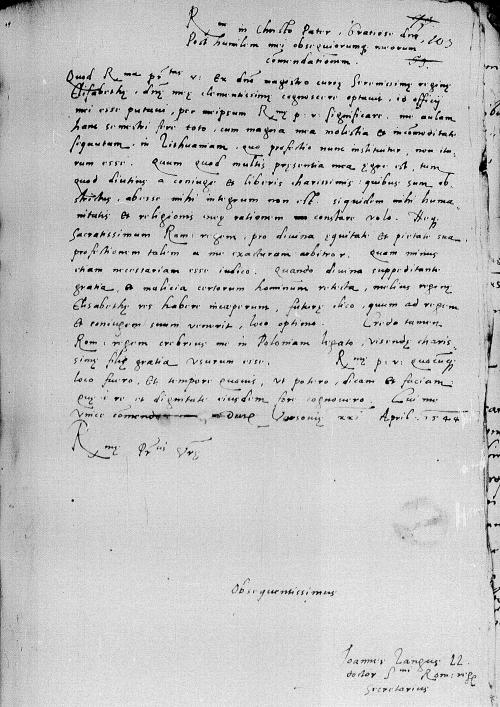 R me in Christo Pater, Gratiose dne
Post humilem meorum obsequiorum
comendationem. 103
Quod R ma p. v. Ex dno magistro curie Serenissime regine
Elisabethe, dne mee clementissime cognoscere optavit, id officij
mei esse putavi, per meipsum R me p. v. significare. me aulam
hanc semestri fere toto, cum magna mea molestia et incomoditate
sequutum, in Lithuaniam, quo profectio nunc instituitur, non itu-
rum esse. quum quod multis presentia mea egre est, tum
quod diutius a coniuge et liberis charissimis: quibus sum ob-
strictus, abesse mihi integrum non est. siquidem mihi huma-
nitatis et religionis mee rationem constare volo. Neque
Sacratissimum Rom: regem, pro divina equitate et pietate sua,
profectionem talem a me exacturum arbitror. Quam minus
etiam necessariam esse iudico. Quando divina suppeditante
gratia, et malicia certorum hominum retecta, melius regine
Elisabethe res habere inceperunt, future ilico, quum ad regem
et coniugem suum venerit, loco optimo. Credo tamen
Rom: regem crebrius me in Poloniam legato, visende charis-
sime filie gratia usurum esse. R me p. v. quocunque
loco fuero, et tempore quovis, ut potero, dicam et faciam:
que e re et dignitate eiusdem fore cognovero. Cui me
unice comendo. April. 1544
R me P v re
Obsequentissimus
Ioannes Langus LL.
doctor S mi Rom: regie
secretarius